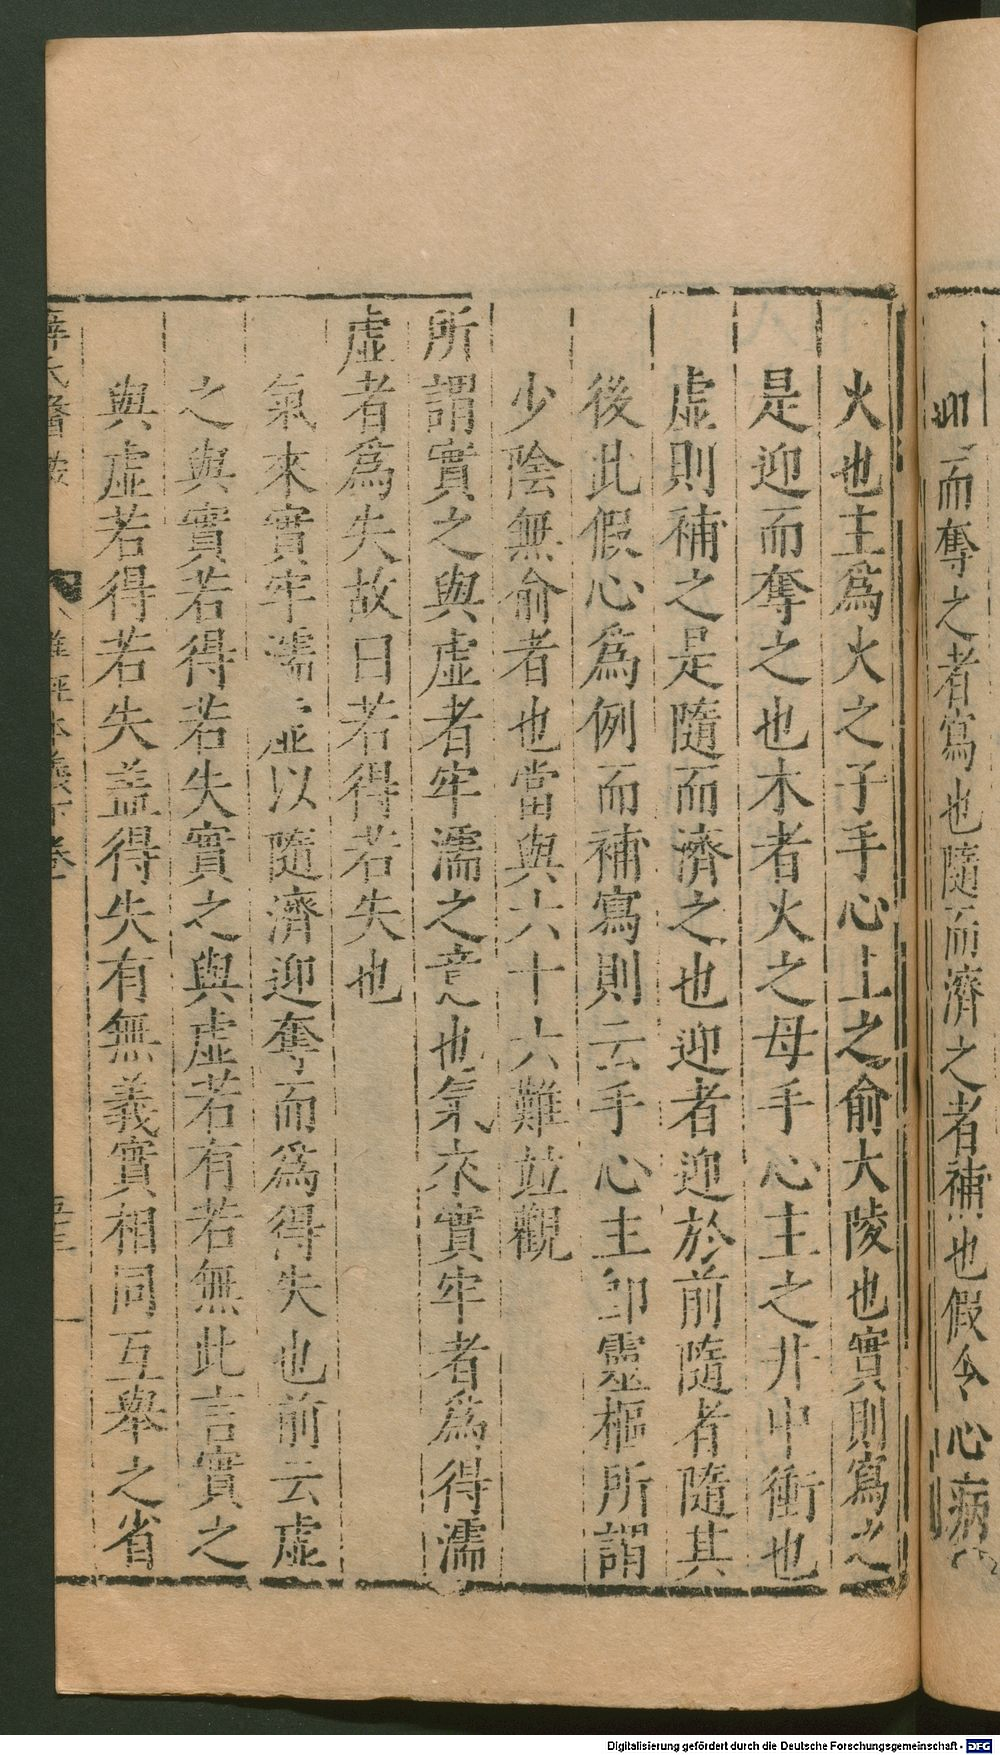 而奪之者寫也隨而濟之者補也假令心病
火也主爲火之子手心主之俞大陵也實則寫之
是迎而奪之也木者火之母手心主之井中衝也
虛則補之是隨而濟之也迎者迎於前隨者隨其
後此假心爲例而補寫則云手心主卽靈樞所謂
少陰無俞者也當與六十六難並觀
所謂實之與虛者牢濡之意也氣來實牢者爲得濡
虛者爲失故曰若得若失也
氣來實牢濡虛以隨濟迎奪而爲得失也前云虛
之與實若得若失實之與虛若有若無此言實之
與虛若得若失盖得失有無義實相同互舉之省
難經本義下卷
Digitalisierung gefördert durch die Deutsche Forschungsgemeinschaft - DFG